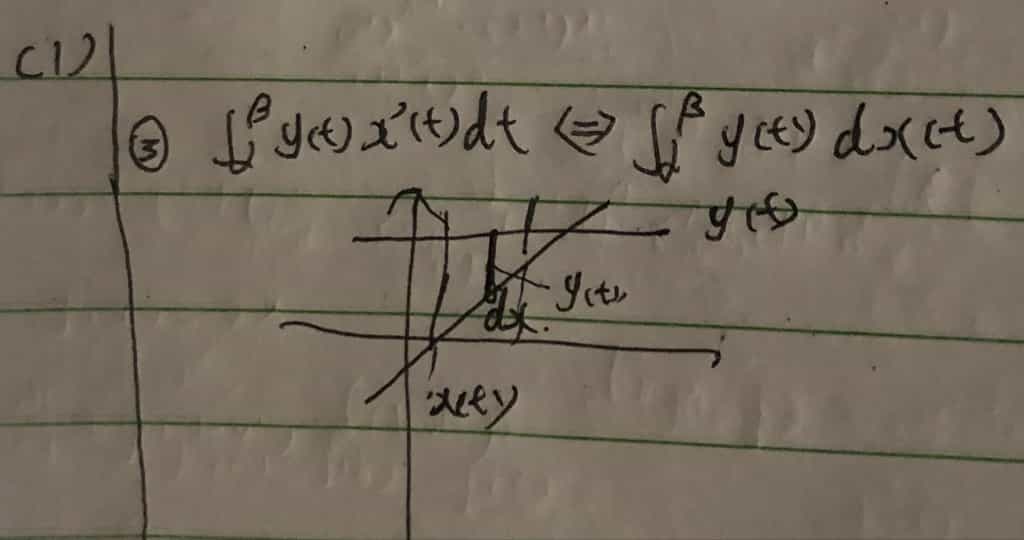 (1)
③ ∫_α^β y(t) x'(t) dt ⇔ ∫_α^β y(t) dx(t)
y(t)
y(t)
dx.
x(t)